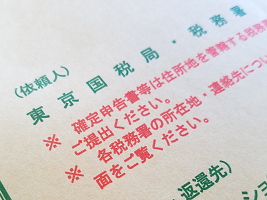 (依頼人)
東京国税局・税務署
※ 確定申告書等は住所地を管轄する税務
ご提出ください。
※ 各税務署の所在地・連絡先につい
面をご覧ください。
返還先)